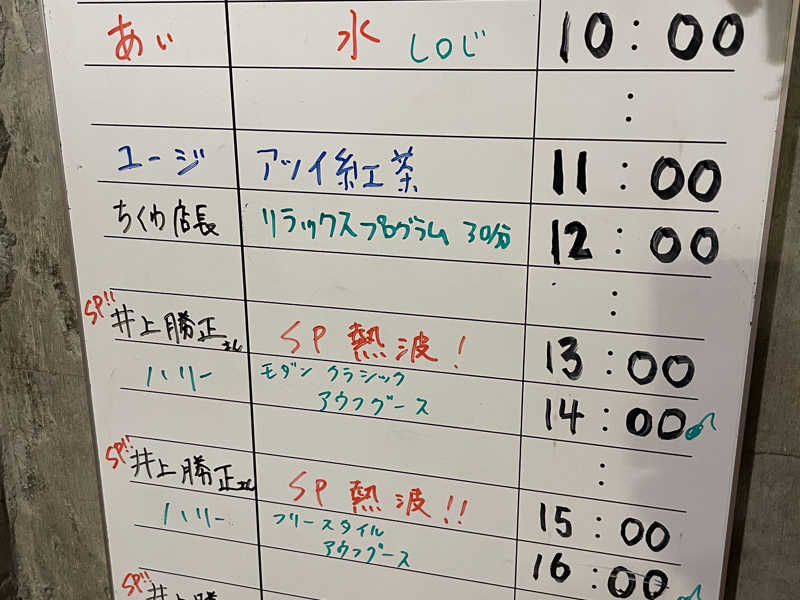 あい 水 しロじ 10:00
:
ユージ アツイ紅茶 11:00
ちくわ店長 リラックスプログラム 30分 12:00
:
SP!! 井上勝正さん SP 熱波! 13:00
ハリー モダン クラシック
アウフグース 14:00
:
SP!! 井上勝正さん SP 熱波!! 15:00
ハリー フリースタイル
アウフグース 16:00
SP!! 井上勝